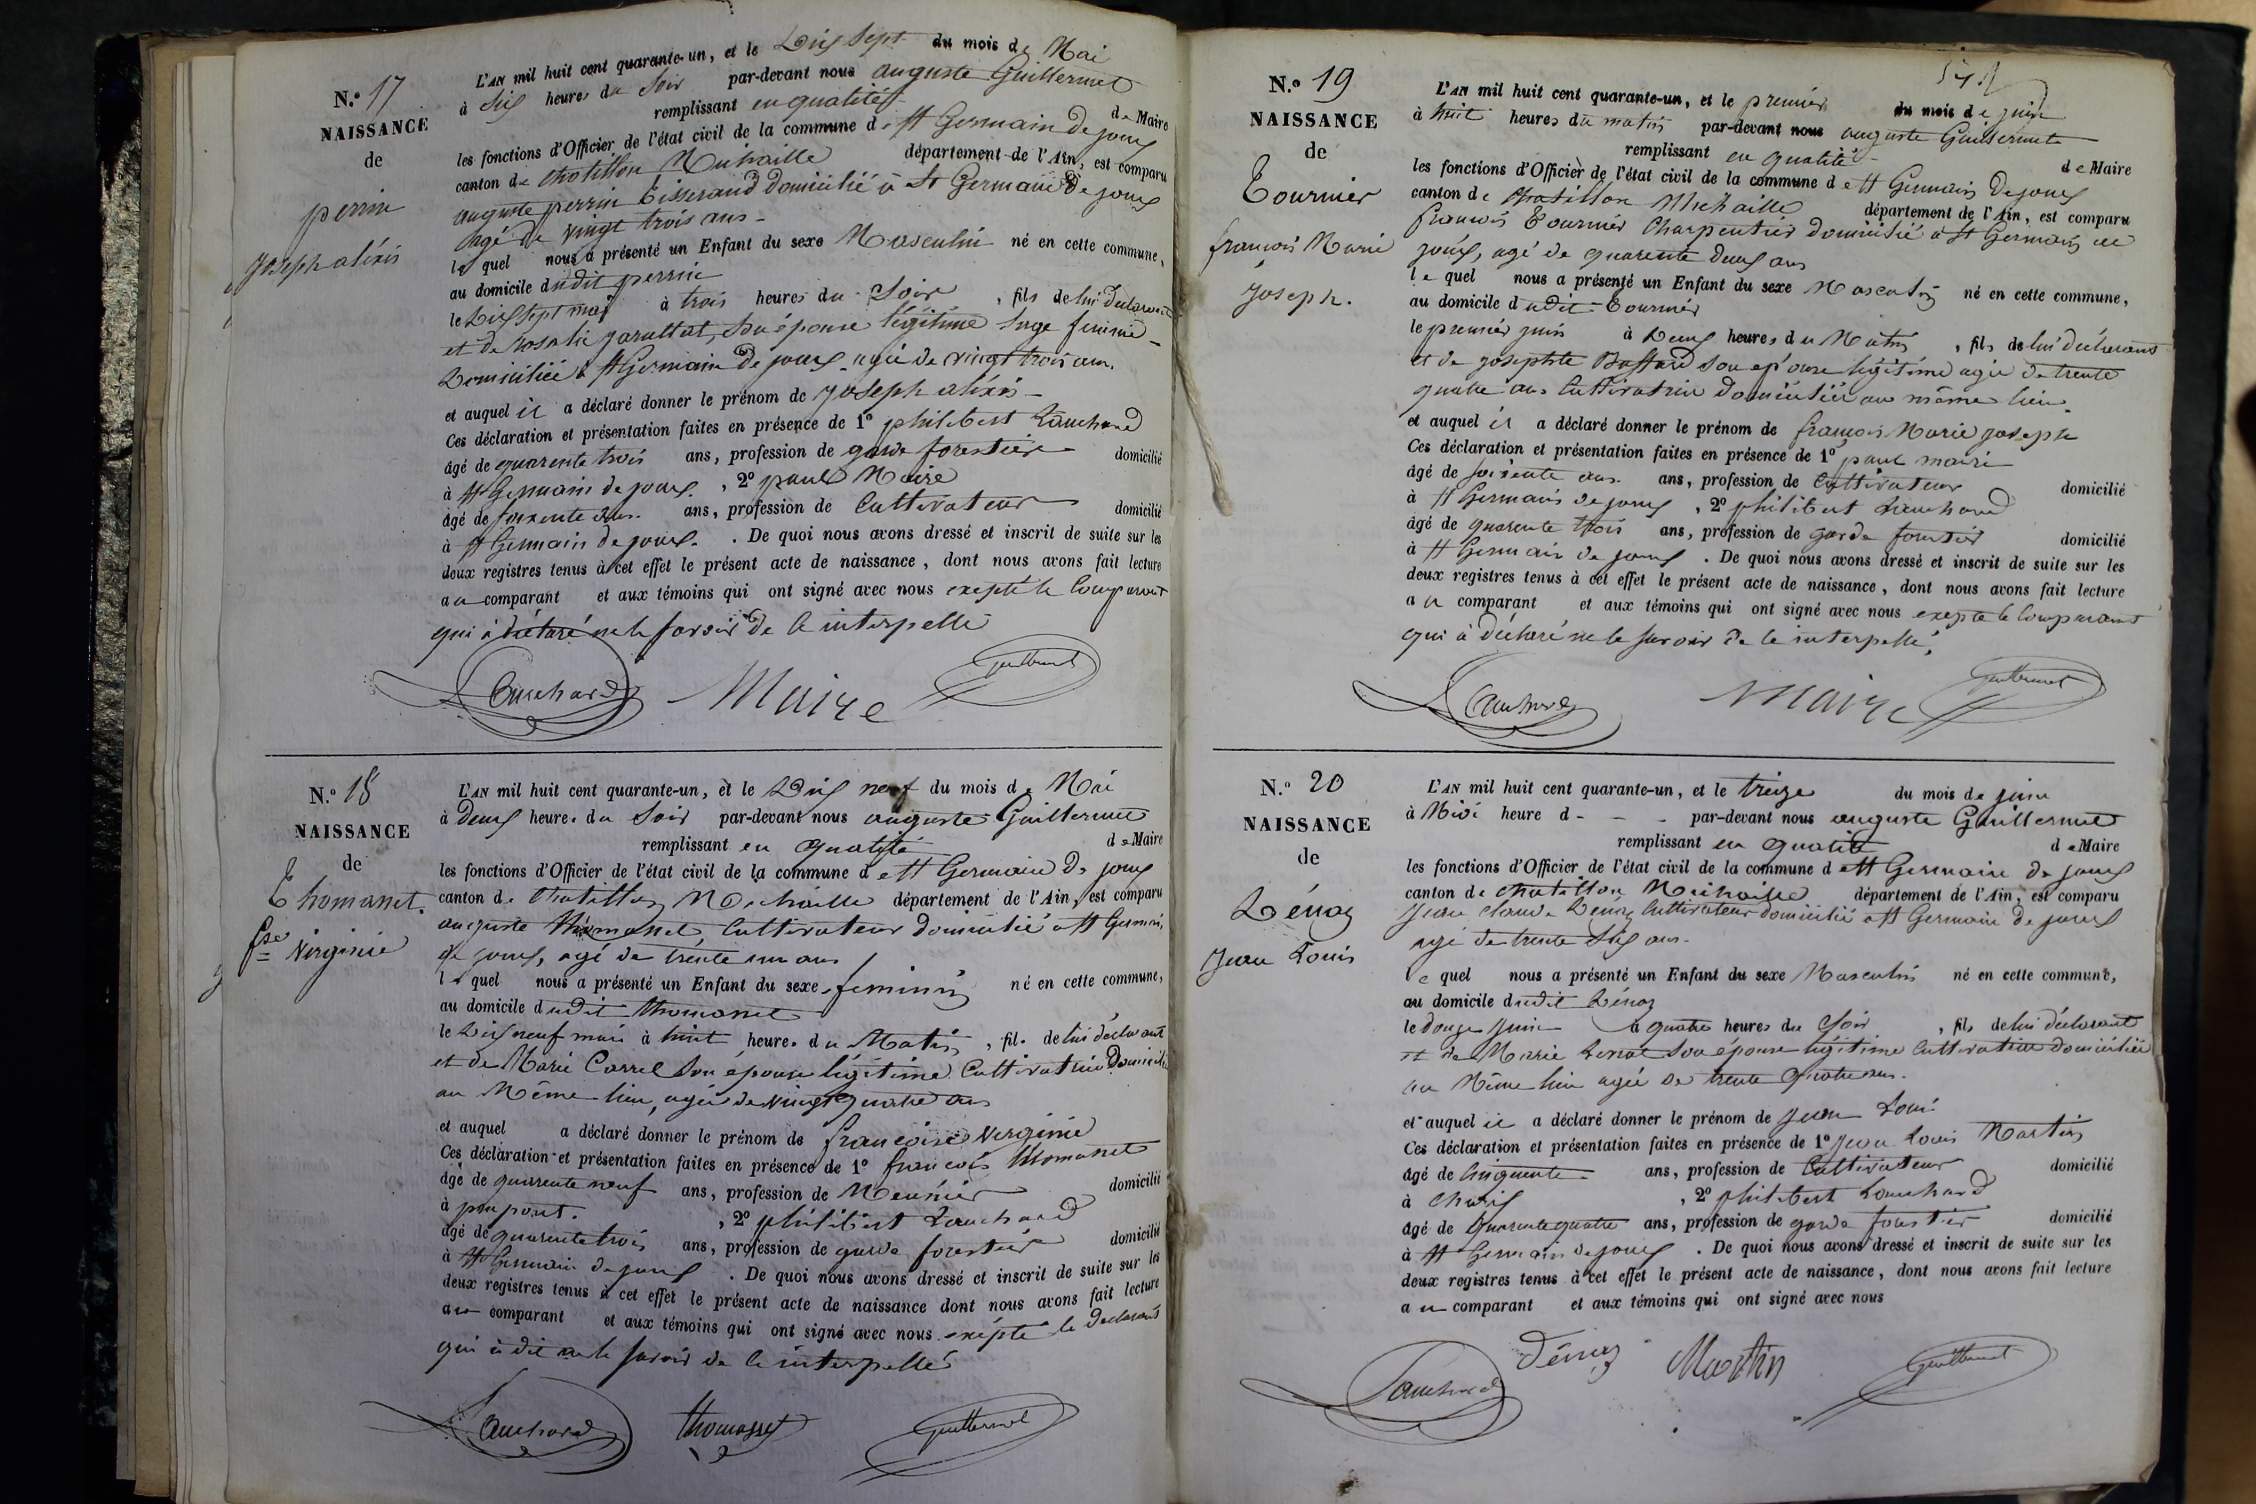 N.º 17
NAISSANCE
de
perrin
joseph aléxis
L'AN mil huit cent quarante-un, et le Dix sept du mois de Mai
à Six heures du Soir par-devant nous auguste Guillermet
remplissant en qualité de Maire
les fonctions d'Officier de l'état civil de la commune de St Germain de joux
canton de Chatillon Michaille département de l'Ain, est comparu
auguste perrin tisserand domicilié à St Germain De joux
agé de vingt trois ans -
le quel nous a présenté un Enfant du sexe Masculin né en cette commune,
au domicile dudit perrin
le Dix sept mai à trois heures du Soir, fils de lui déclarant
et de rosalie son épouse légitime sage femme
Domiciliée à St Germain De joux agée de vingt trois ans.
et auquel il a déclaré donner le prénom de joseph aléxis -
Ces déclaration et présentation faites en présence de 1º philibert Lauchard
âgé de quarente trois ans, profession de garde forestier domicilié
à St Germain de joux. , 2º paul Maire
âgé de soixente ans. ans, profession de Cultivateur domicilié
à St Germain de joux. . De quoi nous avons dressé et inscrit de suite sur les
deux registres tenus à cet effet le présent acte de naissance, dont nous avons fait lecture
au comparant et aux témoins qui ont signé avec nous excepté le Comparant
qui à déclaré ne le savoir De ce interpellé
Lauchard Maire Guillermet
N.º 18
NAISSANCE
de
Thomasset.
fse Virginie
L'AN mil huit cent quarante-un, et le Dix neuf du mois de Mai
à Deux heures du Soir par-devant nous auguste Guillermet
remplissant en qualité de Maire
les fonctions d'Officier de l'état civil de la commune de St Germain De joux
canton de Chatillon Michaille département de l'Ain, est comparu
auguste thomasset, Cultivateur domicilié a St Germain
de joux, agé de trente un ans
le quel nous a présenté un Enfant du sexe feminin né en cette commune,
au domicile dudit thomasset
le Dix neuf mai à huit heures du Matin, fil. de lui déclarant
et de Marie Carrel Son épouse légitime Cultivatrice Domiciliée
au Même lieu, agée de vingt quatre ans
et auquel a déclaré donner le prénom de françoise Virginie
Ces déclaration et présentation faites en présence de 1º francois thomasset
âgé de quarente neuf ans, profession de Meunier domicilié
à , 2º philibert Lauchard
âgé de quarente trois ans, profession de garde forestier domicilié
à St Germain de joux . De quoi nous avons dressé et inscrit de suite sur les
deux registres tenus à cet effet le présent acte de naissance dont nous avons fait lecture
au comparant et aux témoins qui ont signé avec nous excépté le declarant
qui à dit ne le savoir de ce interpellé
Lauchard thomasset Guillermet
N.º 19
NAISSANCE
de
Tournier
françois Marie
joseph.
L'AN mil huit cent quarante-un, et le premier du mois de juin
à huit heures du matin par-devant nous auguste Guillermet
remplissant en qualité de Maire
les fonctions d'Officier de l'état civil de la commune de St Germain De joux
canton de Chatillon Michaille département de l'Ain, est comparu
francois Tournier Charpentier domicilié à St Germain de
joux, agé de quarente deux ans
le quel nous a présenté un Enfant du sexe Masculin né en cette commune,
au domicile dudit Tournier
le premier juin à Deux heures du Matin, fils de lui déclarant
et de josephte son épouse légitime agée de trente
quatre ans Cultivatrice domiciliée au même lieu.
et auquel il a déclaré donner le prénom de françois Marie joseph
Ces déclaration et présentation faites en présence de 1º paul maire
âgé de soixente ans. ans, profession de Cultivateur domicilié
à St Germain de joux , 2º philibert Lauchard
âgé de quarente trois ans, profession de garde forestier domicilié
à St Germain de joux . De quoi nous avons dressé et inscrit de suite sur les
deux registres tenus à cet effet le présent acte de naissance, dont nous avons fait lecture
au comparant et aux témoins qui ont signé avec nous excepté le Comparant
qui à déclaré ne le savoir de ce interpellé.
Lauchard Maire Guillermet
N.º 20
NAISSANCE
de
Dénoz
Jean Louis
L'AN mil huit cent quarante-un, et le treize du mois de juin
à Midi heure d - - - par-devant nous auguste Guillermet
remplissant en qualité de Maire
les fonctions d'Officier de l'état civil de la commune de St Germain De joux
canton de Chatillon Michaille département de l'Ain, est comparu
Jean Claude Dénoz Cultivateur domicilié a St Germain de joux
agé de trente Six ans.
le quel nous a présenté un Enfant du sexe Masculin né en cette commune,
au domicile dudit Dénoz
le douze Juin à quatre heures du Soir, fils de lui déclarant
et de Marie Son épouse légitime Cultivatrice domiciliée
au Même lieu agée de trente quatre ans.
et auquel il a déclaré donner le prénom de Jean Louis
Ces déclaration et présentation faites en présence de 1º Jean Louis Martin
âgé de Cinquente ans, profession de Cultivateur domicilié
à , 2º philibert Lauchard
âgé de Quarente quatre ans, profession de garde forestier domicilié
à St Germain de joux . De quoi nous avons dressé et inscrit de suite sur les
deux registres tenus à cet effet le présent acte de naissance, dont nous avons fait lecture
au comparant et aux témoins qui ont signé avec nous
Lauchard Dénoz Martin Guillermet